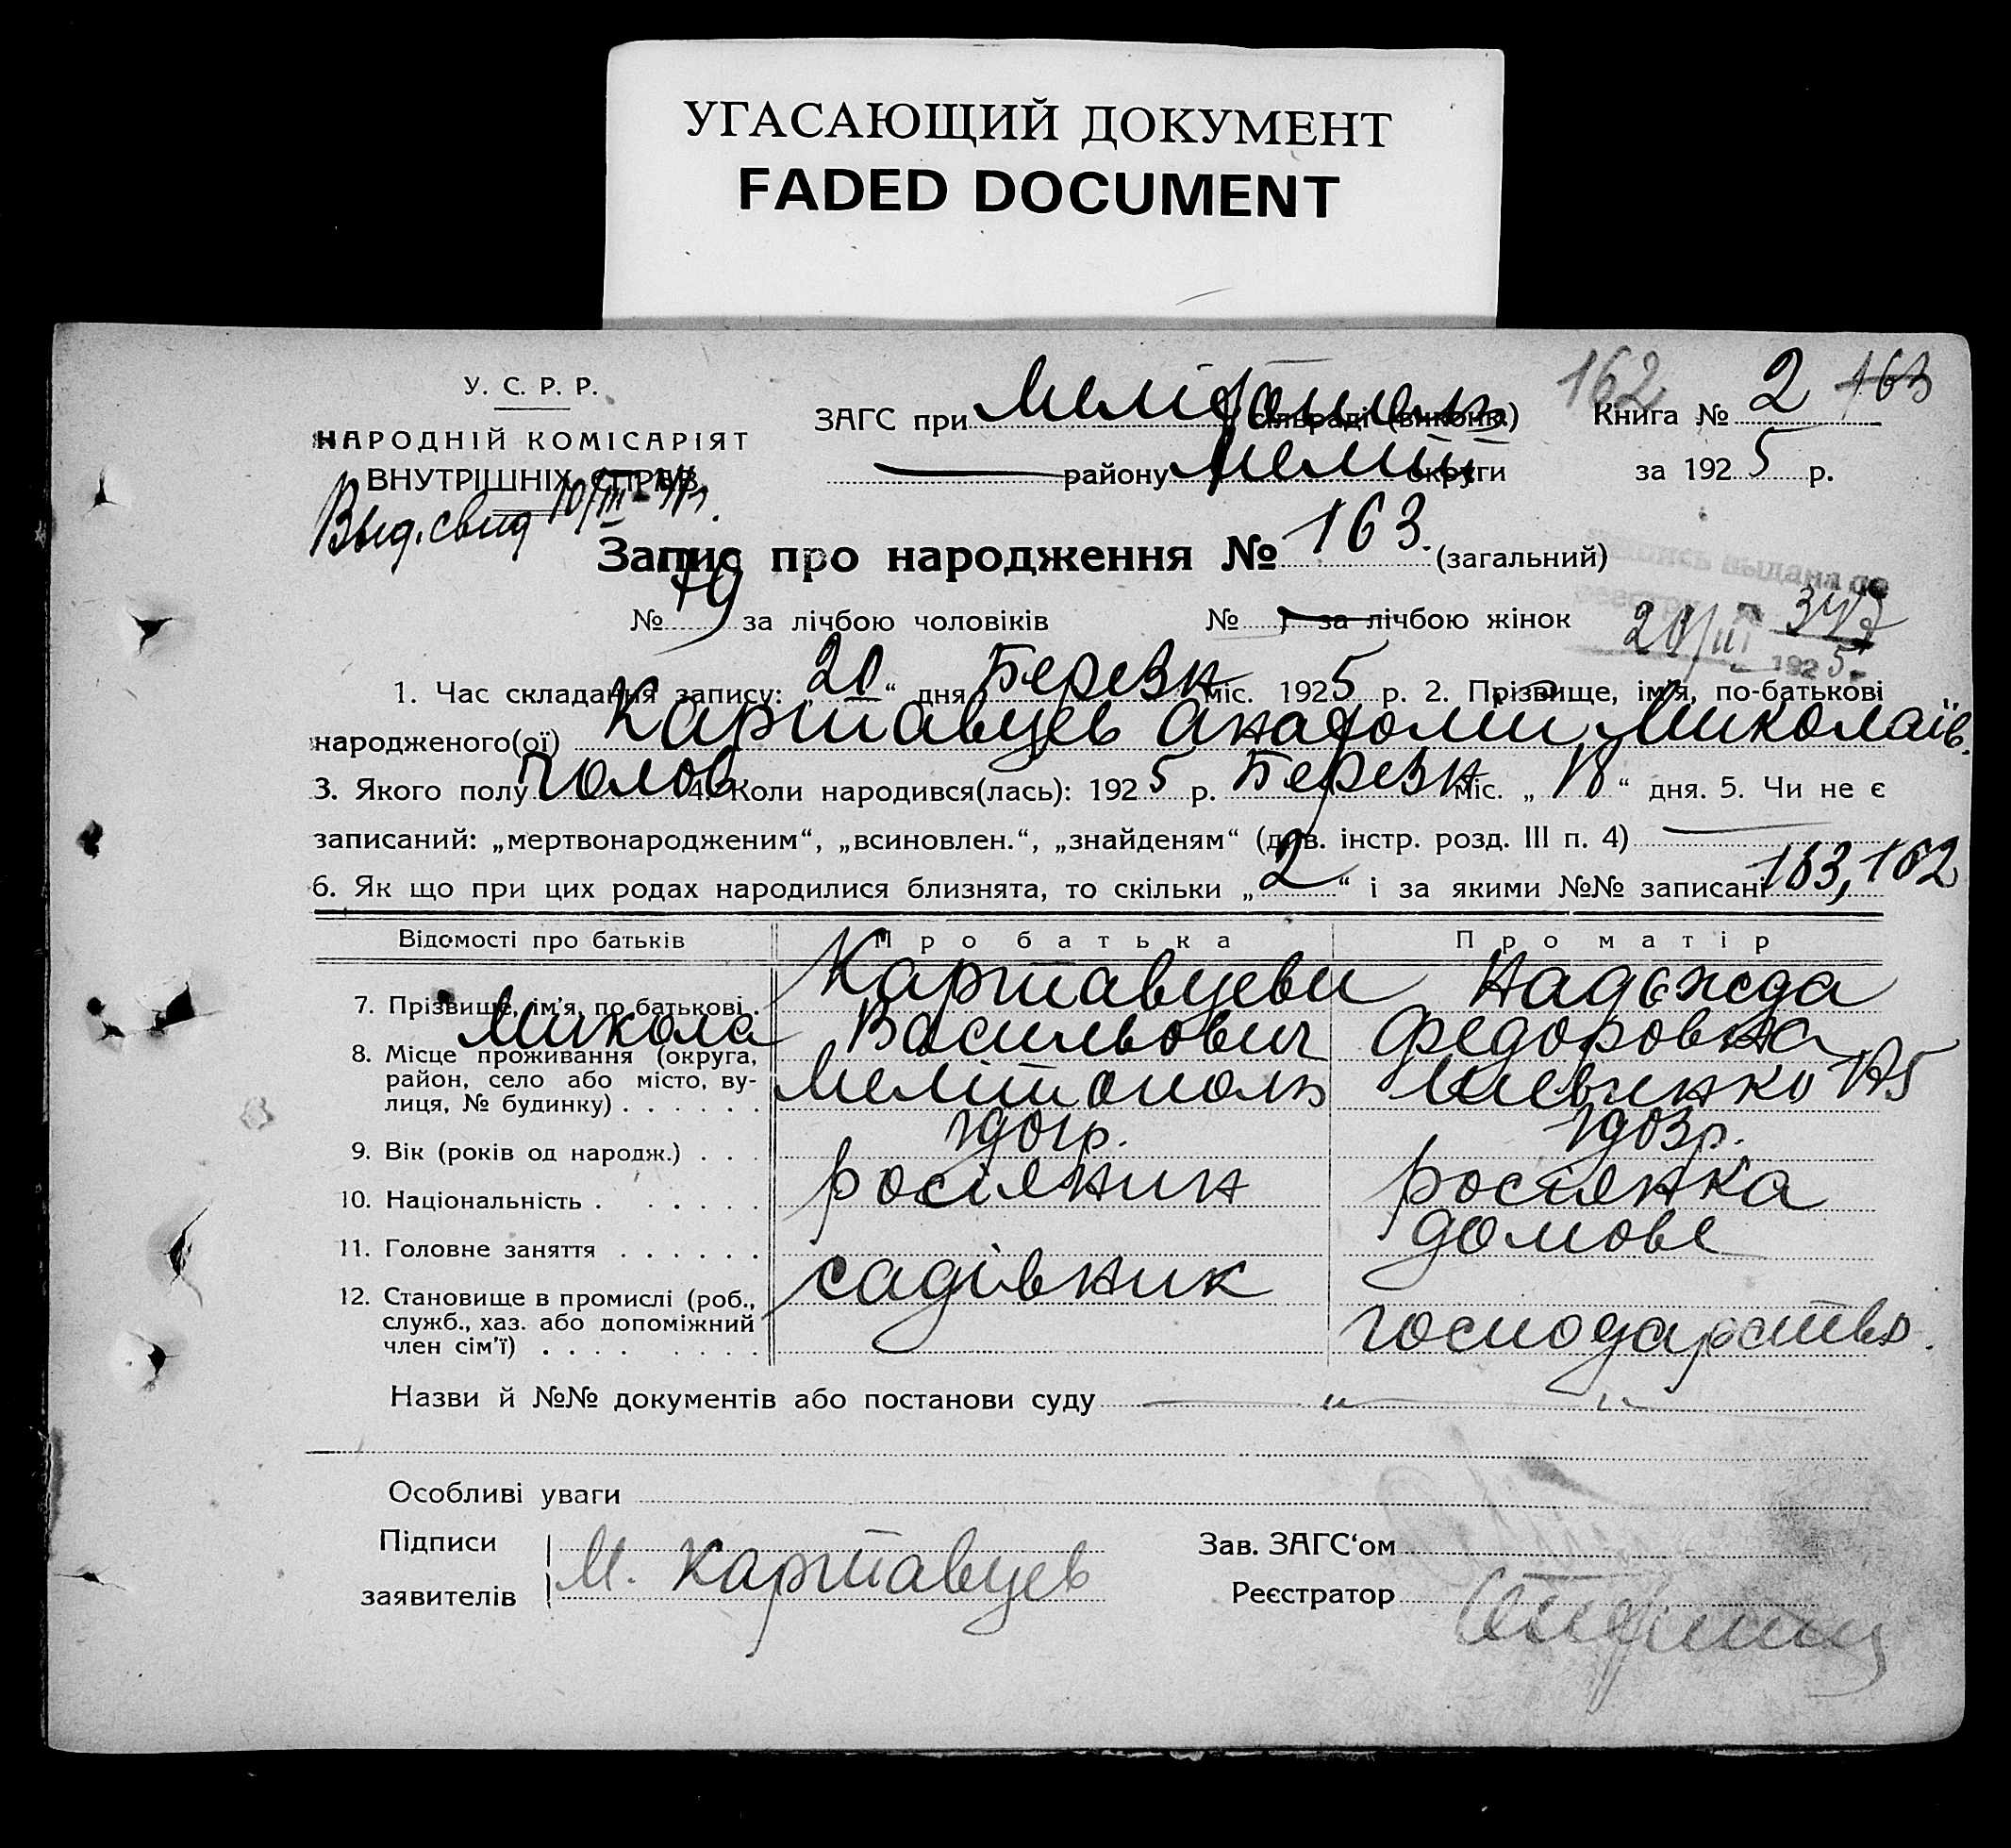 УГАСАЮЩИЙ ДОКУМЕНТ
FADED DOCUMENT
162 163
У. С. Р. Р.
НАРОДНІЙ КОМІСАРІЯТ
ВНУТРІШНІХ СПРАВ
Выд. свид 10/III
ЗАГС при Мелітополь сільраді (виконк.) Книга № 2
— району Меліт округи за 1925 р.
Запис про народження № 163. (загальний)
№ 79 за лічбою чоловіків № за лічбою жінок
выдана по
20/III 347
1925.
1. Час складання запису: „20“ дня Березн міс. 1925 р. 2. Прізвище, ім'я, по-батькові
народженого(ої) Картавцев Анатолій Миколаїв.
3. Якого полу чолов. 4. Коли народився(лась): 1925 р. Березн міс. „18“ дня. 5. Чи не є
записаний: „мертвонародженим“, „всиновлен.“, „знайденям“ (див. інстр. розд. III п. 4) —
6. Як що при цих родах народилися близнята, то скільки „2“ і за якими №№ записані 163, 162
Відомості про батьків Про батька Про матір
7. Прізвище, ім'я, по батькові . Картавцеви Надежда
Микола Васильович Федоровна
8. Місце проживання (округа,
район, село або місто, ву-
лиця, № будинку) . . . . . . Мелітополь Шевченко
9. Вік (років од народж.) . . . 1901р. 1903р.
10. Національність . . . . . . росіянин росіянка
11. Головне заняття . . . . . . садівник домове
12. Становище в промислі (роб.,
служб., хаз. або допоміжний
член сім'ї) . . . . . . . . господарство.
Назви й №№ документів або постанови суду — „ — „ —
Особливі уваги
Підписи
заявителів М. Картавцев
Зав. ЗАГС‘ом
Реєстратор